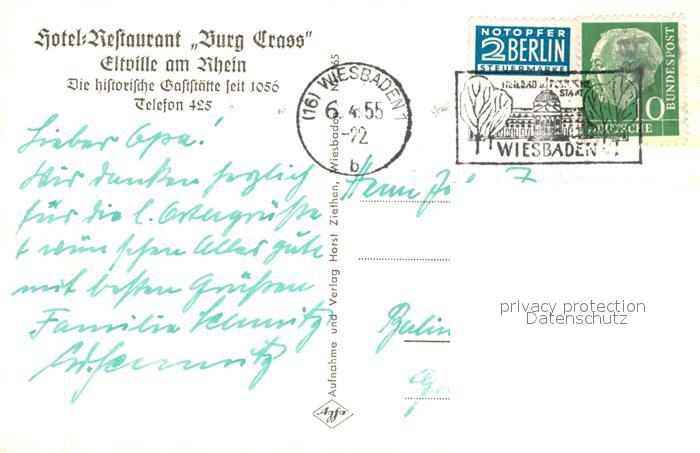 Hotel-Restaurant „Burg Crass"
Eltville am Rhein
Die historische Gaststätte seit 1056
Telefon 425
Lieber Opa!
Wir danken herzlich
für die l. Ostergrüße
+ wünschen Alles gute
mit besten Grüßen
Familie Schmitz
Aufnahme und Verlag Horst Ziethen, Wiesbaden
Agfa
(16) WIESBADEN 1
6.4.55
-22
b
NOTOPFER
2 BERLIN
STEUERMARKE
DEUTSCHE
BUNDESPOST
WIESBADEN
Herrn
Berlin
privacy protection
Datenschutz